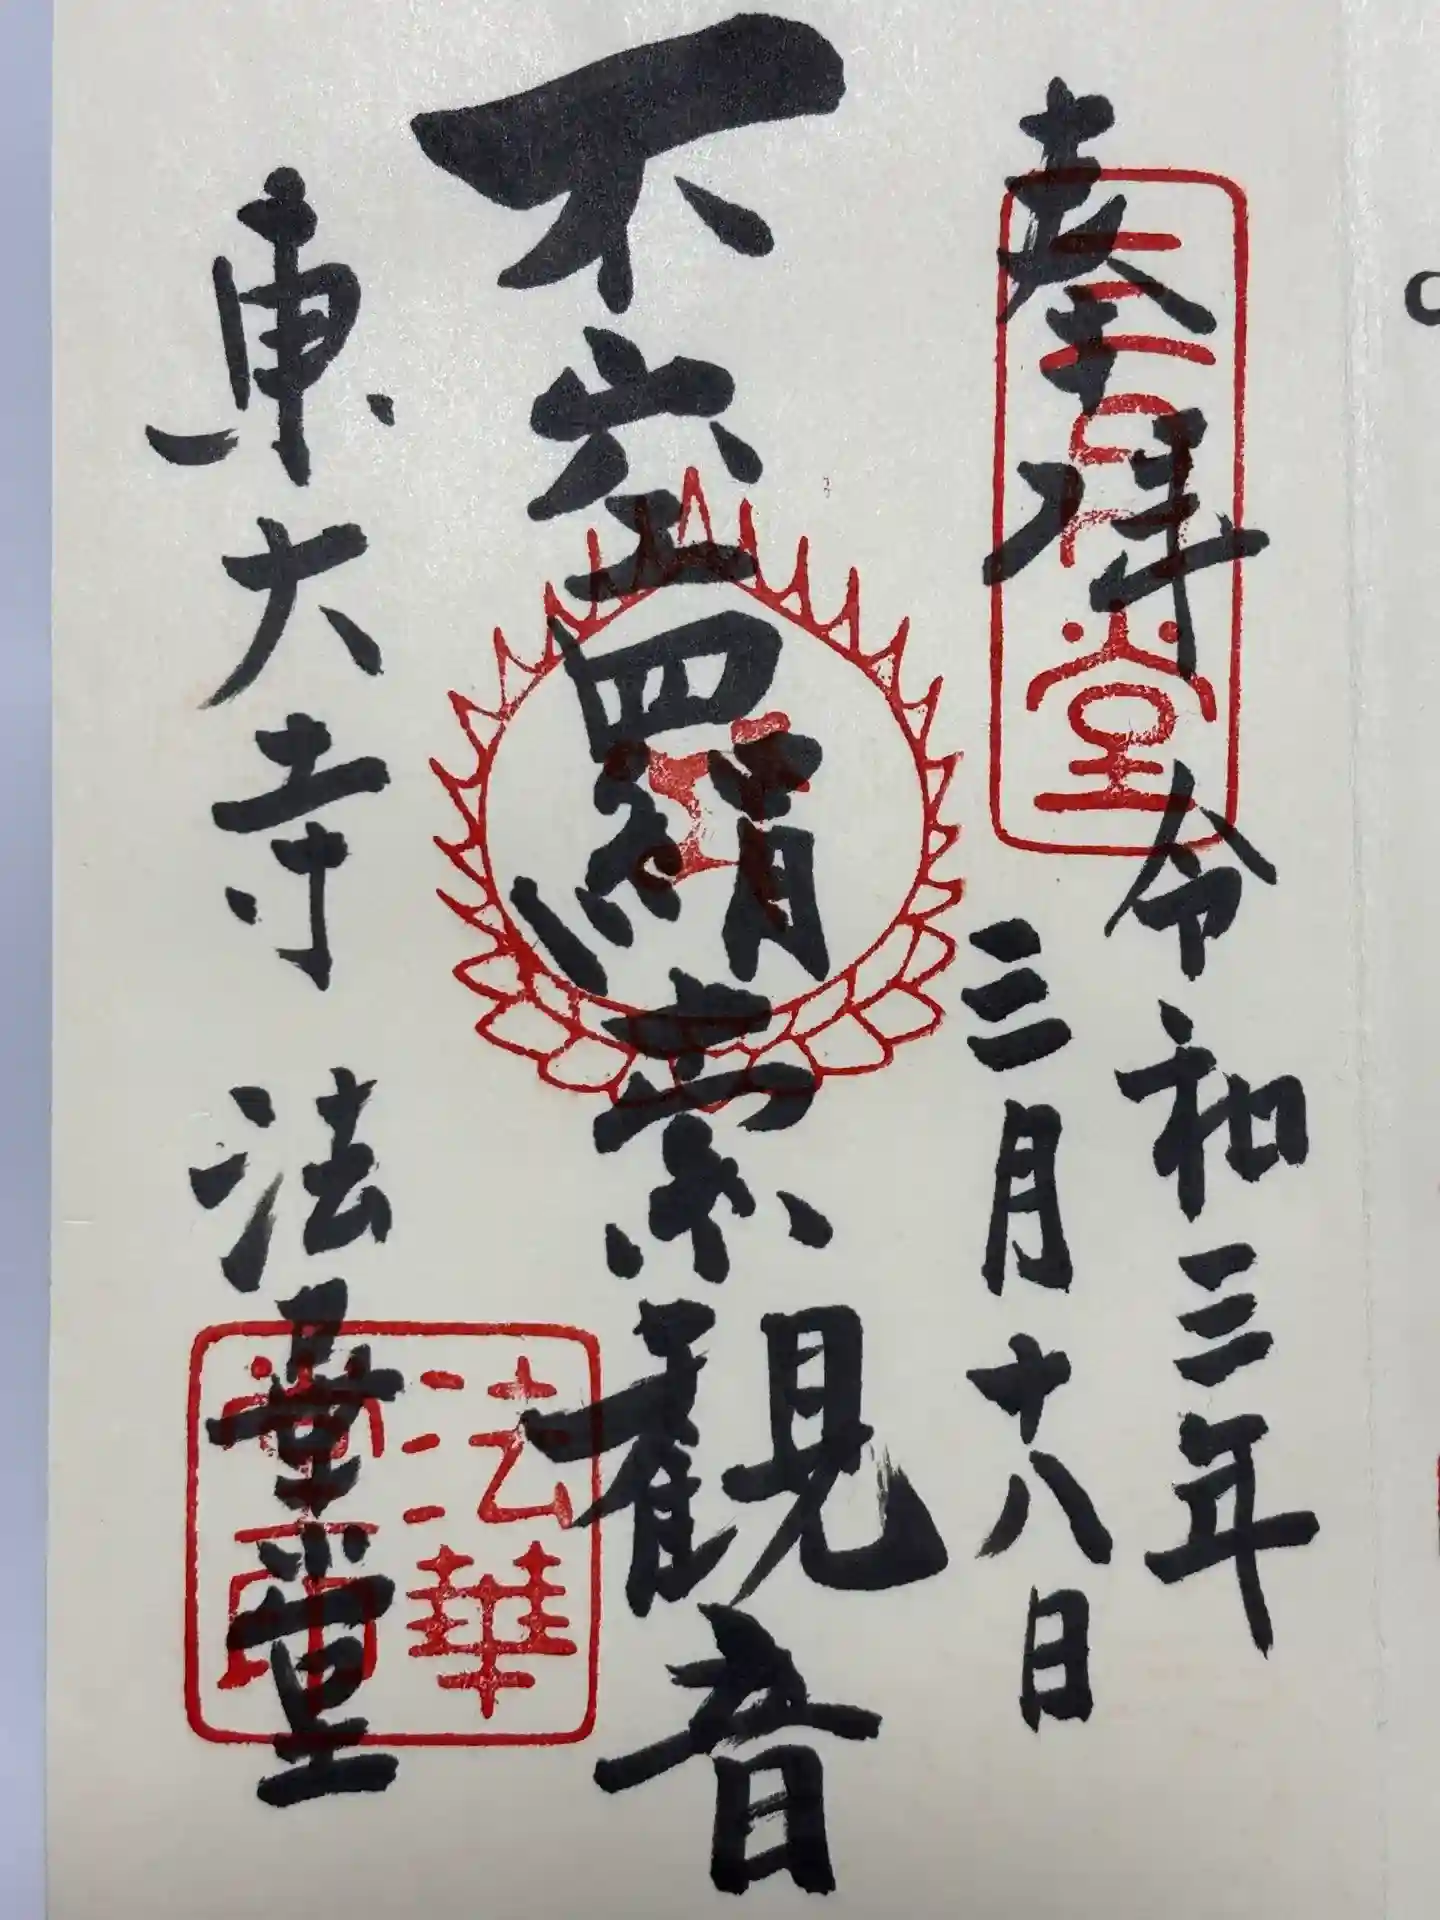 奉拝
令和三年
三月十八日
不空羂索観音
東大寺 法華堂
三月堂
法華
堂印